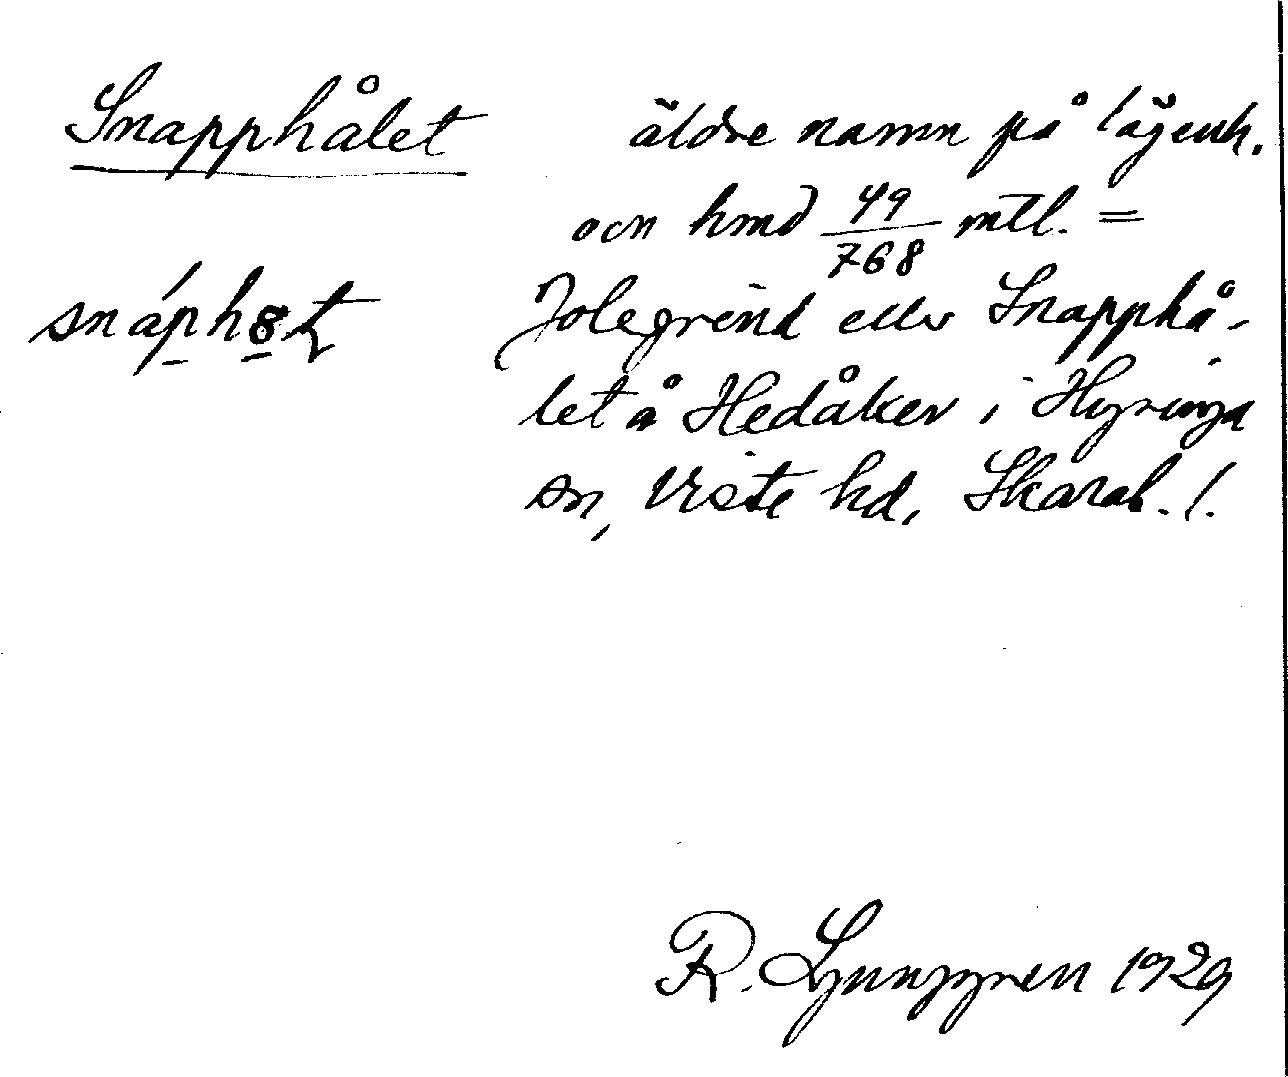 Snapphålet
äldre namn på lägenh.
och hmd 49/768 mtl. =
snáphȣt
Jolegrind eller Snapphå-
let å Hedåker i Hyringa
sn, Viste hd, Skarab. l.
R. Ljunggren 1929